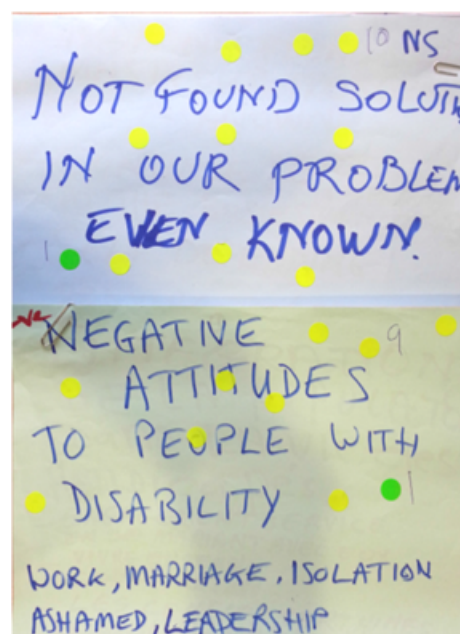 10 NS
NOT FOUND SOLUTI
IN OUR PROBLEM
EVEN KNOWN.
1
NR
NEGATIVE
9
ATTITUDES
TO PEOPLE WITH
DISABILITY
1
WORK, MARRIAGE, ISOLATION
ASHAMED, LEADERSHIP